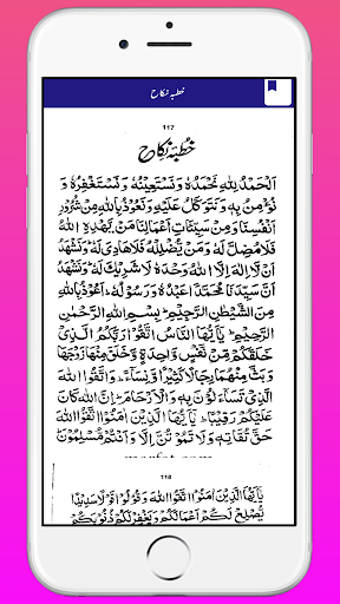 خطبہ نکاح
117
خُطْبَۂ نِکَاح
اَلْحَمْدُ لِلّٰهِ نَحْمَدُهٗ وَنَسْتَعِیْنُهٗ وَنَسْتَغْفِرُهٗ وَ
نُؤْمِنُ بِهٖ وَنَتَوَكَّلُ عَلَیْهِ وَنَعُوْذُ بِاللّٰهِ مِنْ شُرُوْرِ
اَنْفُسِنَا وَمِنْ سَیِّئَاتِ اَعْمَالِنَا مَنْ یَّهْدِهِ اللّٰهُ
فَلَا مُضِلَّ لَهٗ وَمَنْ یُّضْلِلْهُ فَلَا هَادِیَ لَهٗ وَنَشْهَدُ
اَنْ لَّا اِلٰهَ اِلَّا اللّٰهُ وَحْدَهٗ لَا شَرِیْكَ لَهٗ وَنَشْهَدُ
اَنَّ سَیِّدَنَا مُحَمَّدًا عَبْدُهٗ وَرَسُوْلُهٗ، اَعُوْذُ بِاللّٰهِ
مِنَ الشَّیْطٰنِ الرَّجِیْمِ۔ بِسْمِ اللّٰهِ الرَّحْمٰنِ
الرَّحِیْمِ۔ یٰۤاَیُّهَا النَّاسُ اتَّقُوْا رَبَّكُمُ الَّذِیْ
خَلَقَكُمْ مِّنْ نَّفْسٍ وَّاحِدَةٍ وَّخَلَقَ مِنْهَا زَوْجَهَا
وَبَثَّ مِنْهُمَا رِجَالًا كَثِیْرًا وَّنِسَآءً، وَاتَّقُوا اللّٰهَ
الَّذِیْ تَسَآءَلُوْنَ بِهٖ وَالْاَرْحَامَ، اِنَّ اللّٰهَ كَانَ
عَلَیْكُمْ رَقِیْبًا۔ یٰۤاَیُّهَا الَّذِیْنَ اٰمَنُوا اتَّقُوا اللّٰهَ
حَقَّ تُقَاتِهٖ وَلَا تَمُوْتُنَّ اِلَّا وَاَنْتُمْ مُّسْلِمُوْنَ۔
118
یٰۤاَیُّهَا الَّذِیْنَ اٰمَنُوا اتَّقُوا اللّٰهَ وَقُوْلُوْا قَوْلًا سَدِیْدًا
یُّصْلِحْ لَكُمْ اَعْمَالَكُمْ وَیَغْفِرْ لَكُمْ ذُنُوْبَكُمْ